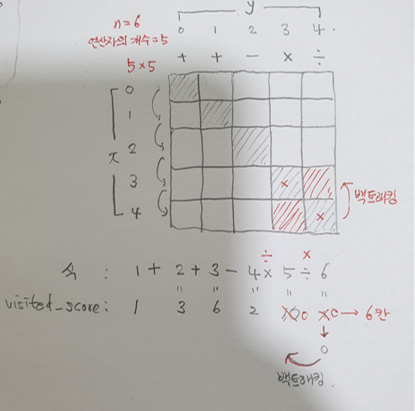 y
n=6
연산자의 개수=5
0 1 2 3 4
5×5
+ + - × ÷
0
1
x 2
3 ×
4 ×
백트래킹
÷ ×
식 : 1 + 2 + 3 - 4 × 5 ÷ 6
= = = = =
visited_score : 1 3 6 2 0 0 → 6칸
0
백트래킹